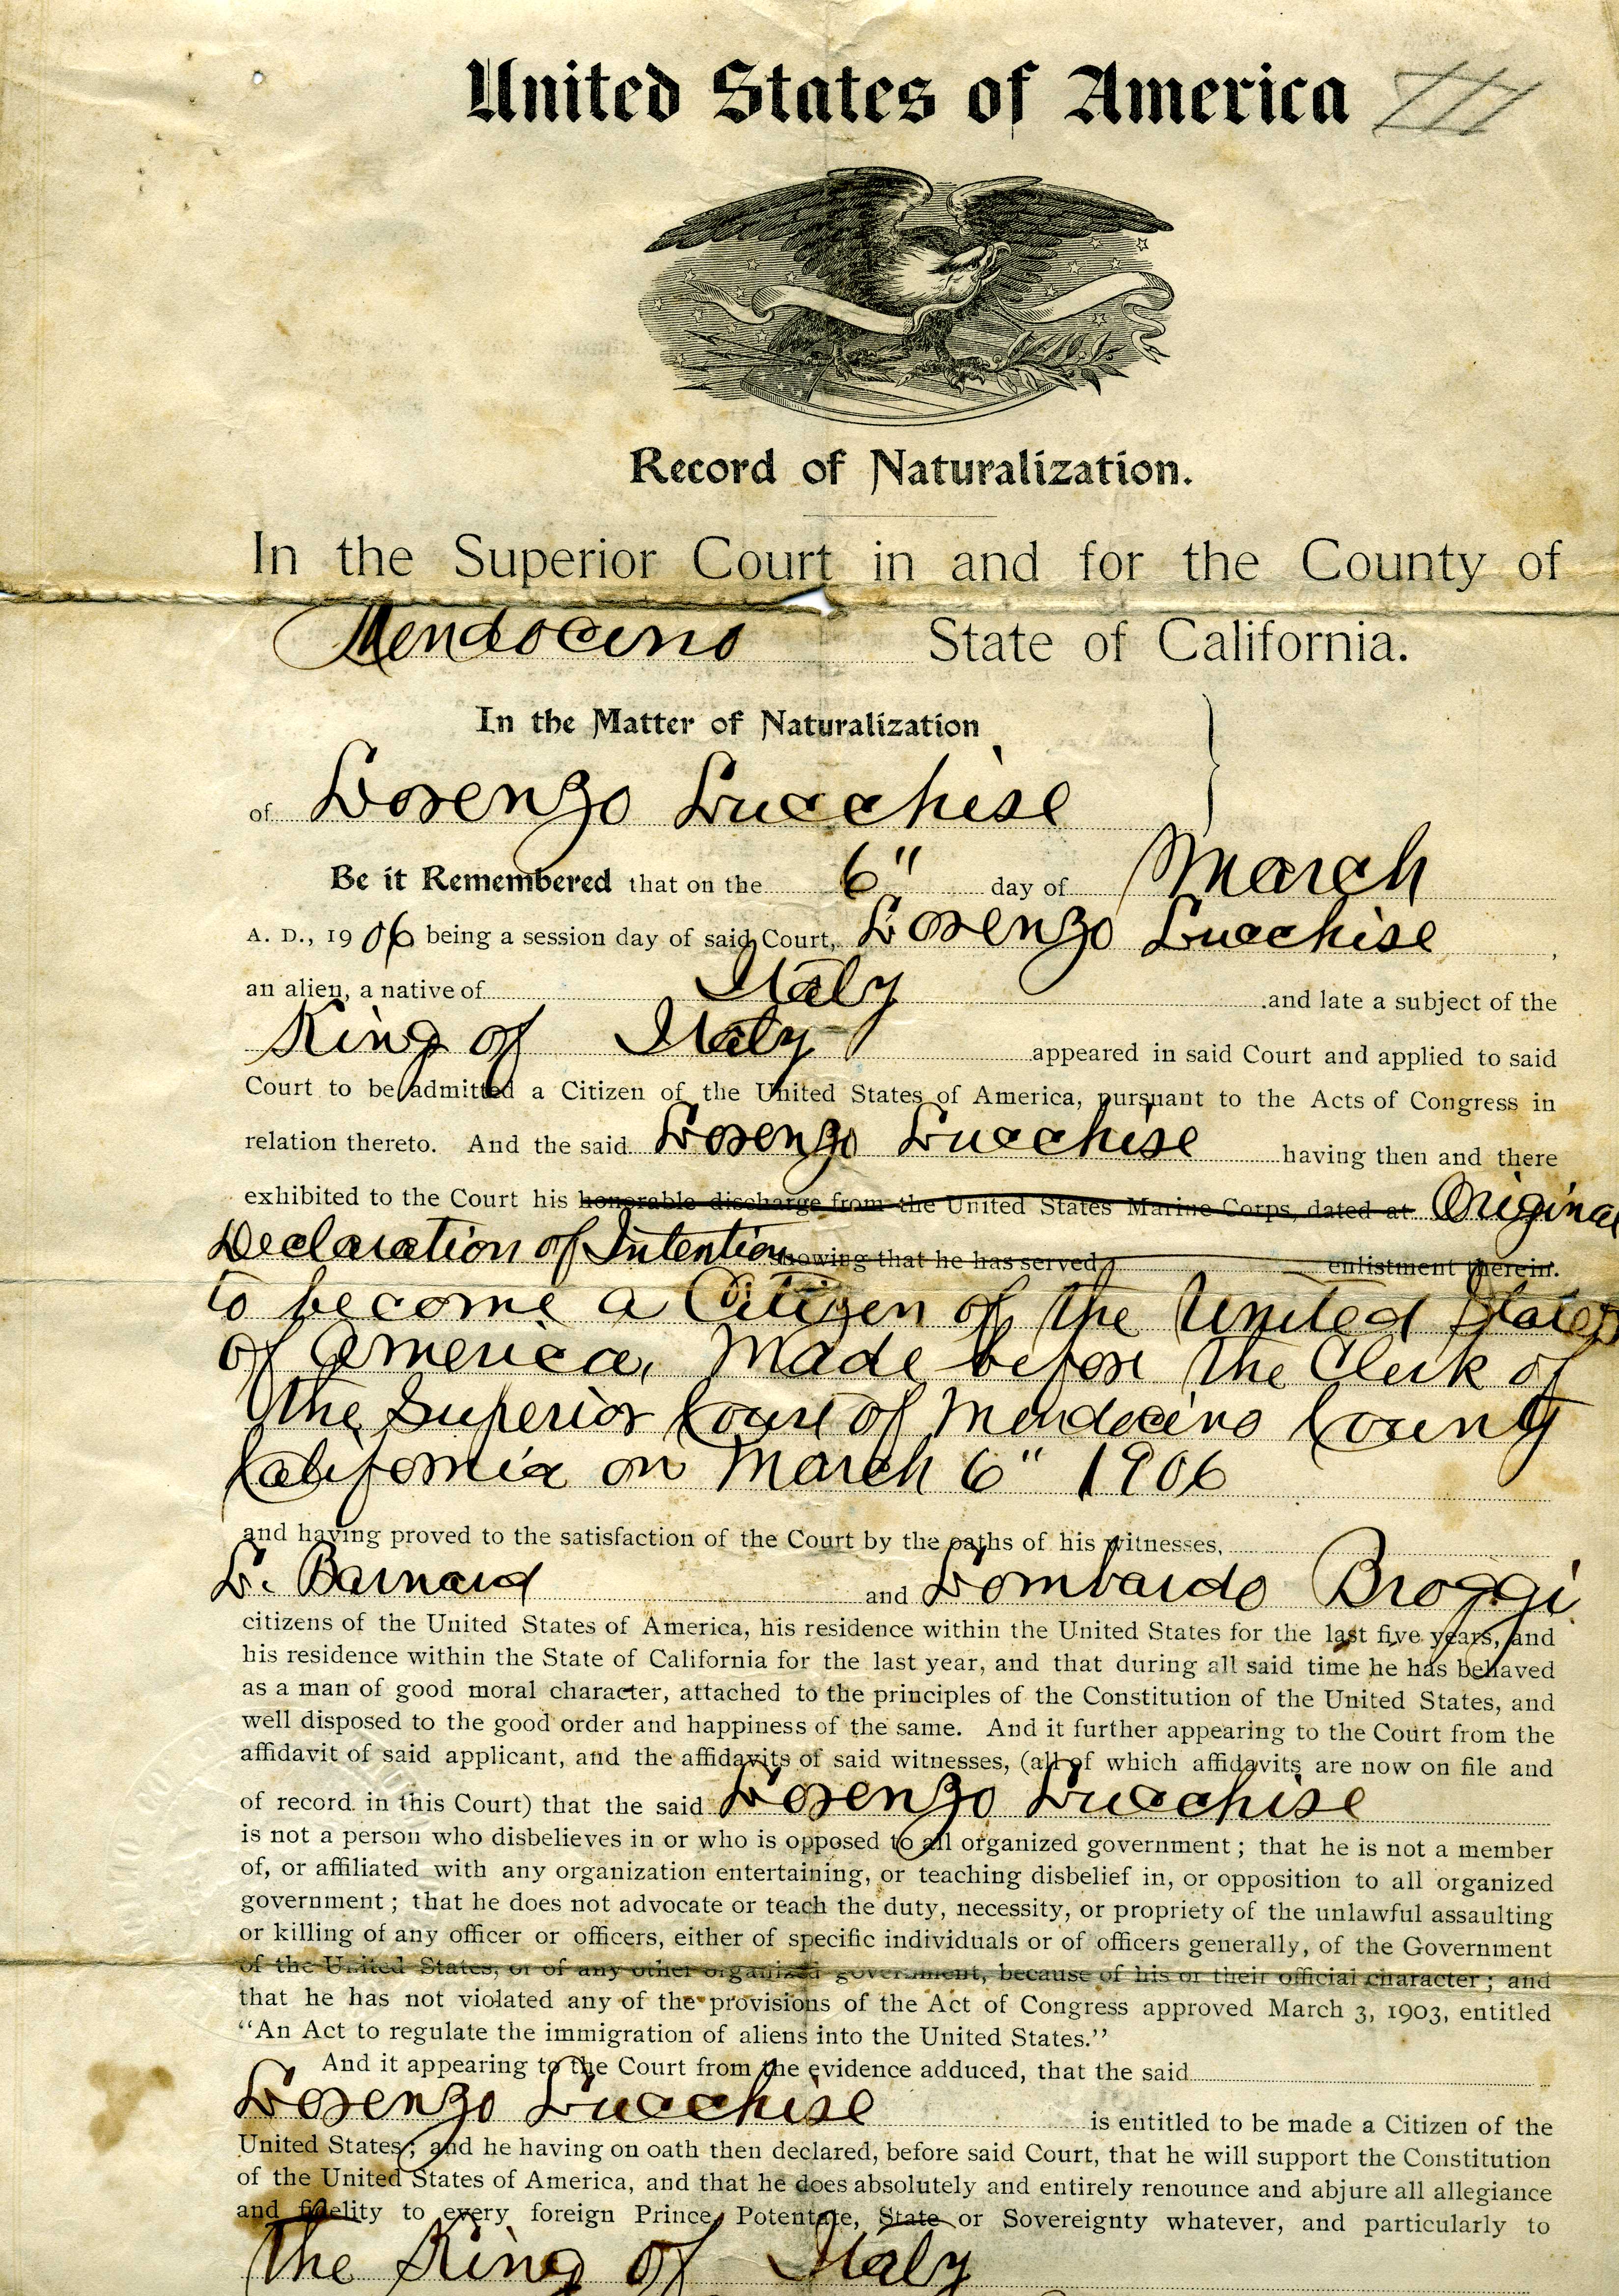 United States of America
Record of Naturalization.
In the Superior Court in and for the County of
Mendocino State of California.
In the Matter of Naturalization
of Lorenzo Lucchise
Be it Remembered that on the 6" day of March
A. D., 1906 being a session day of said Court, Lorenzo Lucchise,
an alien, a native of Italy and late a subject of the
King of Italy appeared in said Court and applied to said
Court to be admitted a Citizen of the United States of America, pursuant to the Acts of Congress in
relation thereto. And the said Lorenzo Lucchise having then and there
exhibited to the Court his honorable discharge from the United States Marine Corps, dated at Original
Declaration of Intention showing that he has served enlistment therein.
to become a Citizen of the United States
of America, Made before the Clerk of
the Superior Court of Mendocino County
California on March 6" 1906
and having proved to the satisfaction of the Court by the oaths of his witnesses,
L. Barnard and Lombardo Broggi
citizens of the United States of America, his residence within the United States for the last five years, and
his residence within the State of California for the last year, and that during all said time he has behaved
as a man of good moral character, attached to the principles of the Constitution of the United States, and
well disposed to the good order and happiness of the same. And it further appearing to the Court from the
affidavit of said applicant, and the affidavits of said witnesses, (all of which affidavits are now on file and
of record in this Court) that the said Lorenzo Lucchise
is not a person who disbelieves in or who is opposed to all organized government; that he is not a member
of, or affiliated with any organization entertaining, or teaching disbelief in, or opposition to all organized
government; that he does not advocate or teach the duty, necessity, or propriety of the unlawful assaulting
or killing of any officer or officers, either of specific individuals or of officers generally, of the Government
of the United States, or of any other organized government, because of his or their official character; and
that he has not violated any of the provisions of the Act of Congress approved March 3, 1903, entitled
"An Act to regulate the immigration of aliens into the United States."
And it appearing to the Court from the evidence adduced, that the said
Lorenzo Lucchise is entitled to be made a Citizen of the
United States; and he having on oath then declared, before said Court, that he will support the Constitution
of the United States of America, and that he does absolutely and entirely renounce and abjure all allegiance
and fidelity to every foreign Prince, Potentate, State or Sovereignty whatever, and particularly to
The King of Italy